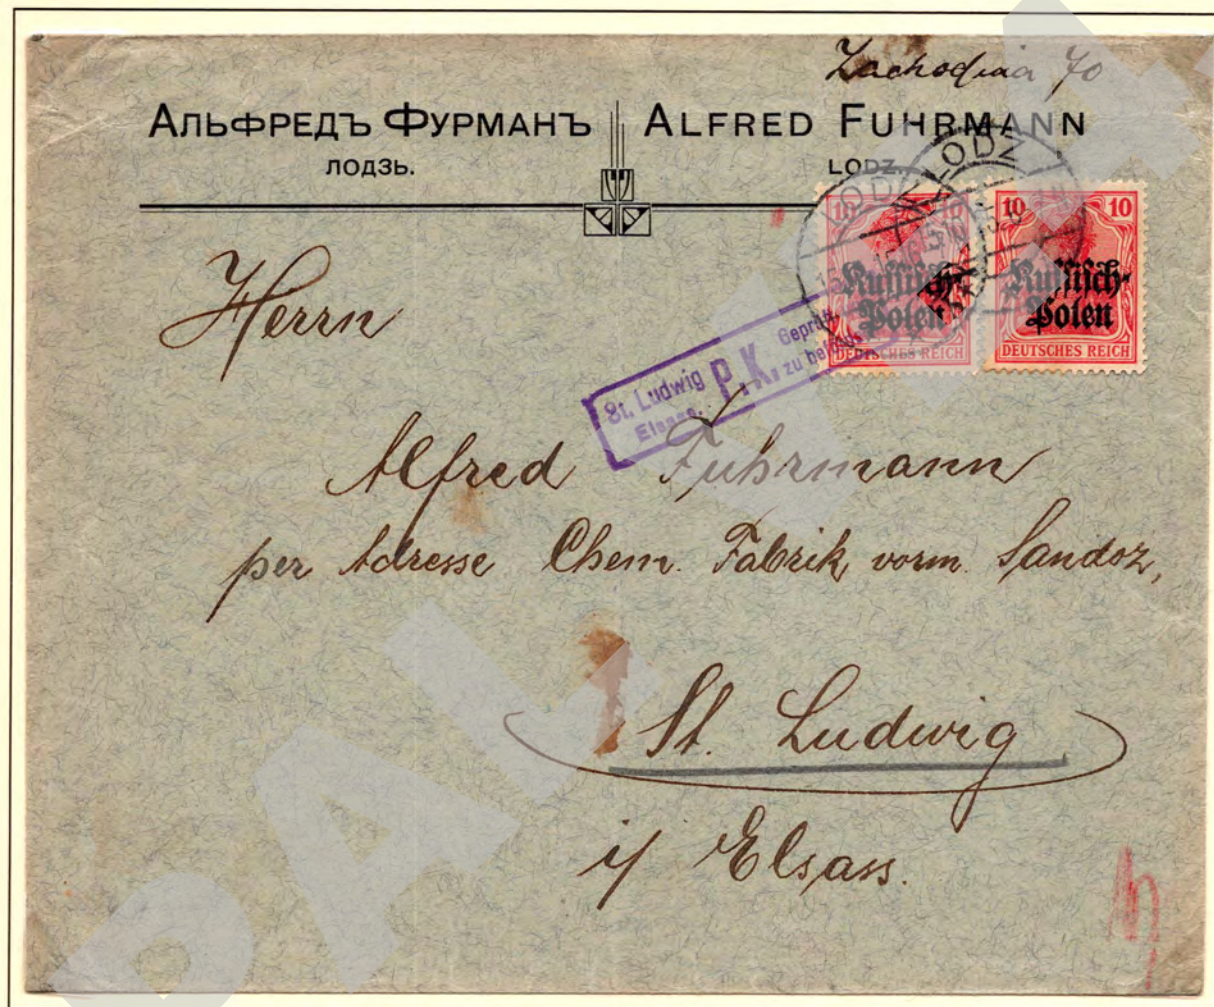 Zachodnia 70
Альфредъ Фурманъ
лодзь.
Alfred Fuhrmann
LODZ.
LODZ
LODZ
10 10
Russisch-
Polen
DEUTSCHES REICH
10 10
Russisch-
Polen
DEUTSCHES REICH
St. Ludwig
Elsass.
P.K.
Geprüft
zu
Herrn
Alfred Fuhrmann
per Adresse Chem. Fabrik vorm. Sandoz,
St. Ludwig
i/ Elsass.